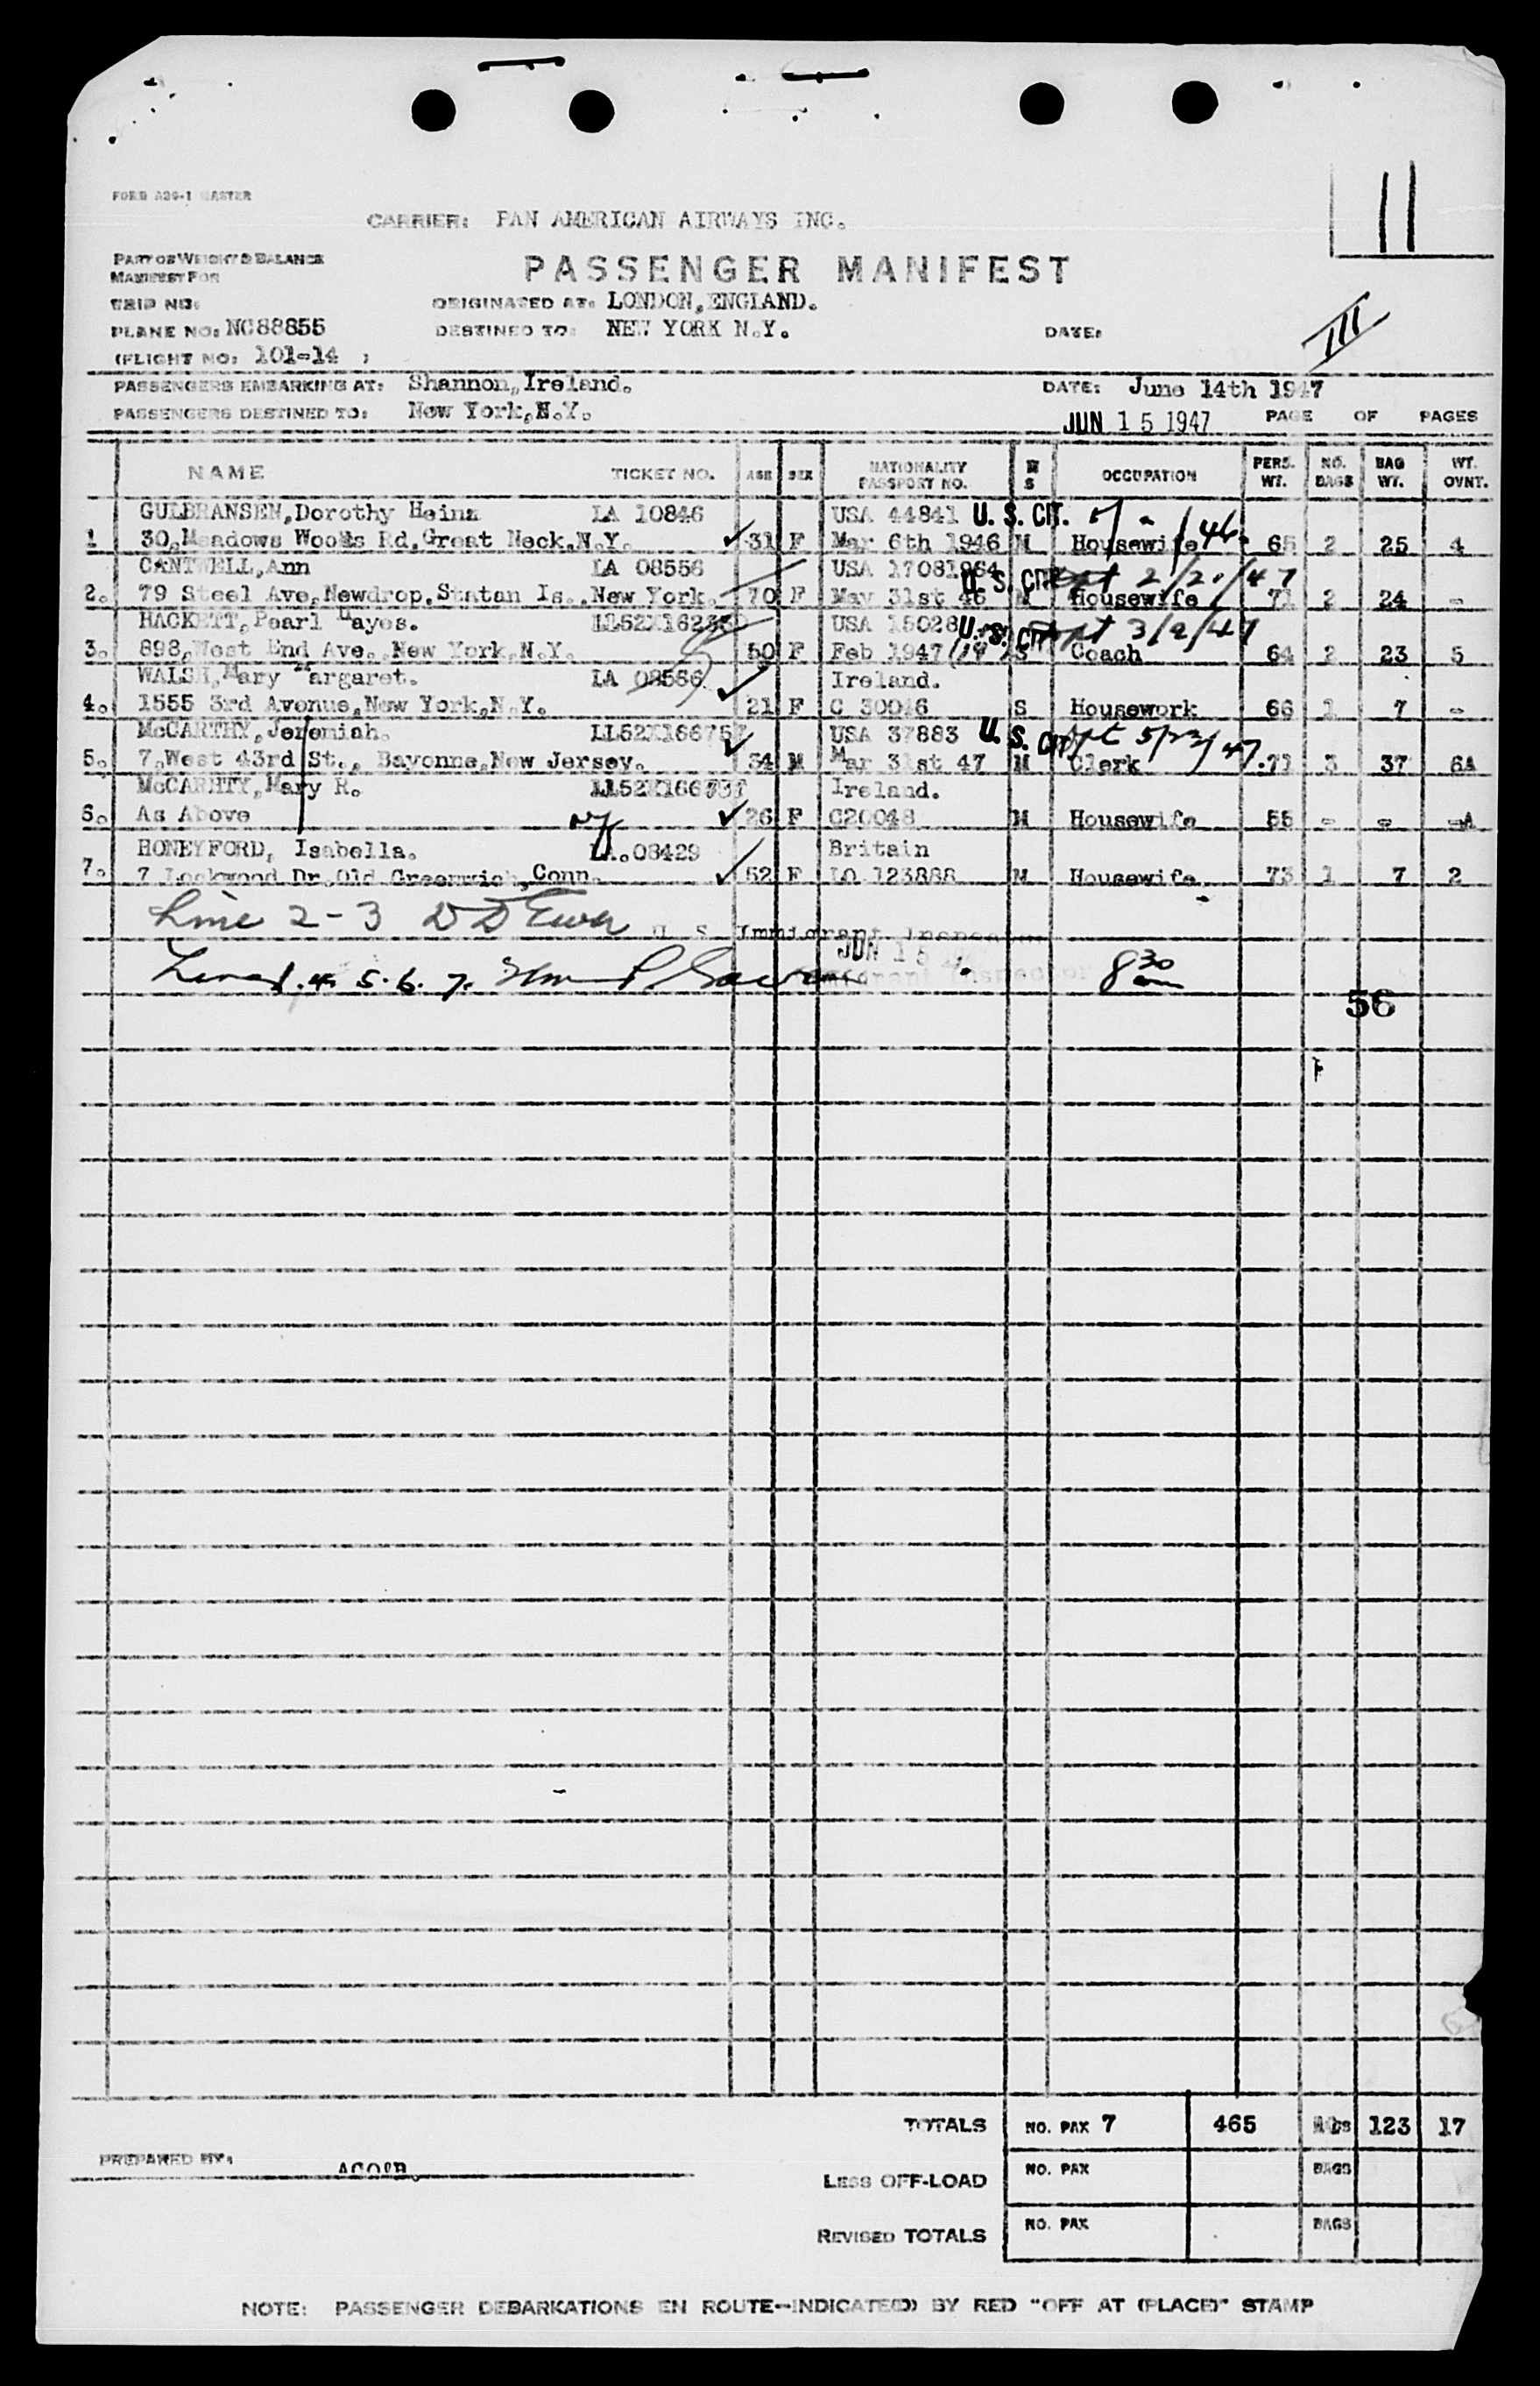 FORM A30-1 MASTER
11
CARRIER: PAN AMERICAN AIRWAYS INC.
PART OF WEIGHT & BALANCE
MANIFEST FOR
PASSENGER MANIFEST
TRIP NO:
ORIGINATED AT: LONDON, ENGLAND.
PLANE NO: NC88855
DESTINED TO: NEW YORK N.Y.
DATE:
(FLIGHT NO: 101-14 )
III
PASSENGERS EMBARKING AT: Shannon, Ireland.
DATE: June 14th 1947
PASSENGERS DESTINED TO: New York, N.Y.
JUN 15 1947
PAGE OF PAGES
NAME TICKET NO. AGE SEX NATIONALITY PASSPORT NO. M S OCCUPATION PERS. WT. NO. BAGS BAG WT. WT. OVNT.
GULBRANSEN, Dorothy Heinz LA 10846 USA 44841 U. S. CIT.
1 30, Meadows Woods Rd, Great Neck, N.Y. 31 F Mar 6th 1946 M Housewife 65 2 25 4
CANTWELL, Ann LA 08556 USA U. S. CIT 2/20/47
2. 79 Steel Ave, Newdrop, Statan Is., New York. 70 F May 31st 46 M Housewife 71 2 24 -
HACKETT, Pearl Hayes. USA 15028 U. S. CIT 3/9/47
3. 898, West End Ave., New York, N.Y. 50 F Feb 1947 S Coach 64 2 23 5
WALSH, Mary Margaret. LA 08566 Ireland.
4. 1555 3rd Avenue, New York, N.Y. 21 F C 30046 S Housework 66 1 7 -
McCARTHY, Jeremiah. USA 37883 U. S. CIT
5. 7, West 43rd St., Bayonne, New Jersey. 34 M Mar 31st 47 M Clerk 71 3 37 6A
McCARHTY, Mary R. Ireland.
6. As Above 26 F C20048 M Housewife 55 - - -A
HONEYFORD, Isabella. LA. 08429 Britain
7. 7 Lockwood Dr, Old Greenwich, Conn. 52 F LO 123888 M Housewife 73 1 7 2
Line 2-3
U. S. Immigrant Inspector
JUN 15
1. 4. 5. 6. 7.
Immigrant Inspector
8 30 am
56
TOTALS NO. PAX 7 465 BAGS 123 17
PREPARED BY:
LESS OFF-LOAD NO. PAX BAGS
REVISED TOTALS NO. PAX BAGS
NOTE: PASSENGER DEBARKATIONS EN ROUTE-INDICATE(D) BY RED "OFF AT (PLACE)" STAMP